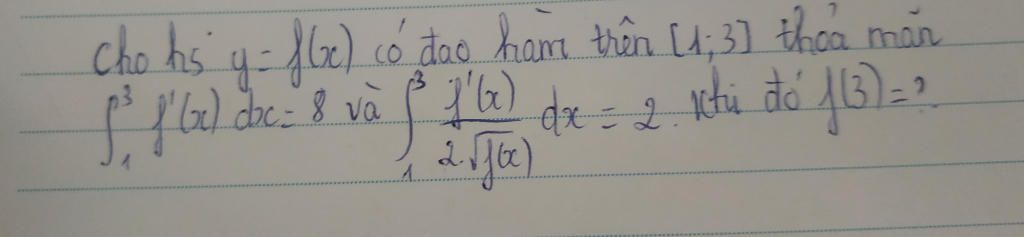 Cho hs y = f(x) có đạo hàm trên [1;3] thỏa mãn
∫₁³ f'(x) dx = 8 và ∫₁³ f'(x)/(2.√f(x)) dx = 2. Khi đó f(3) = ?